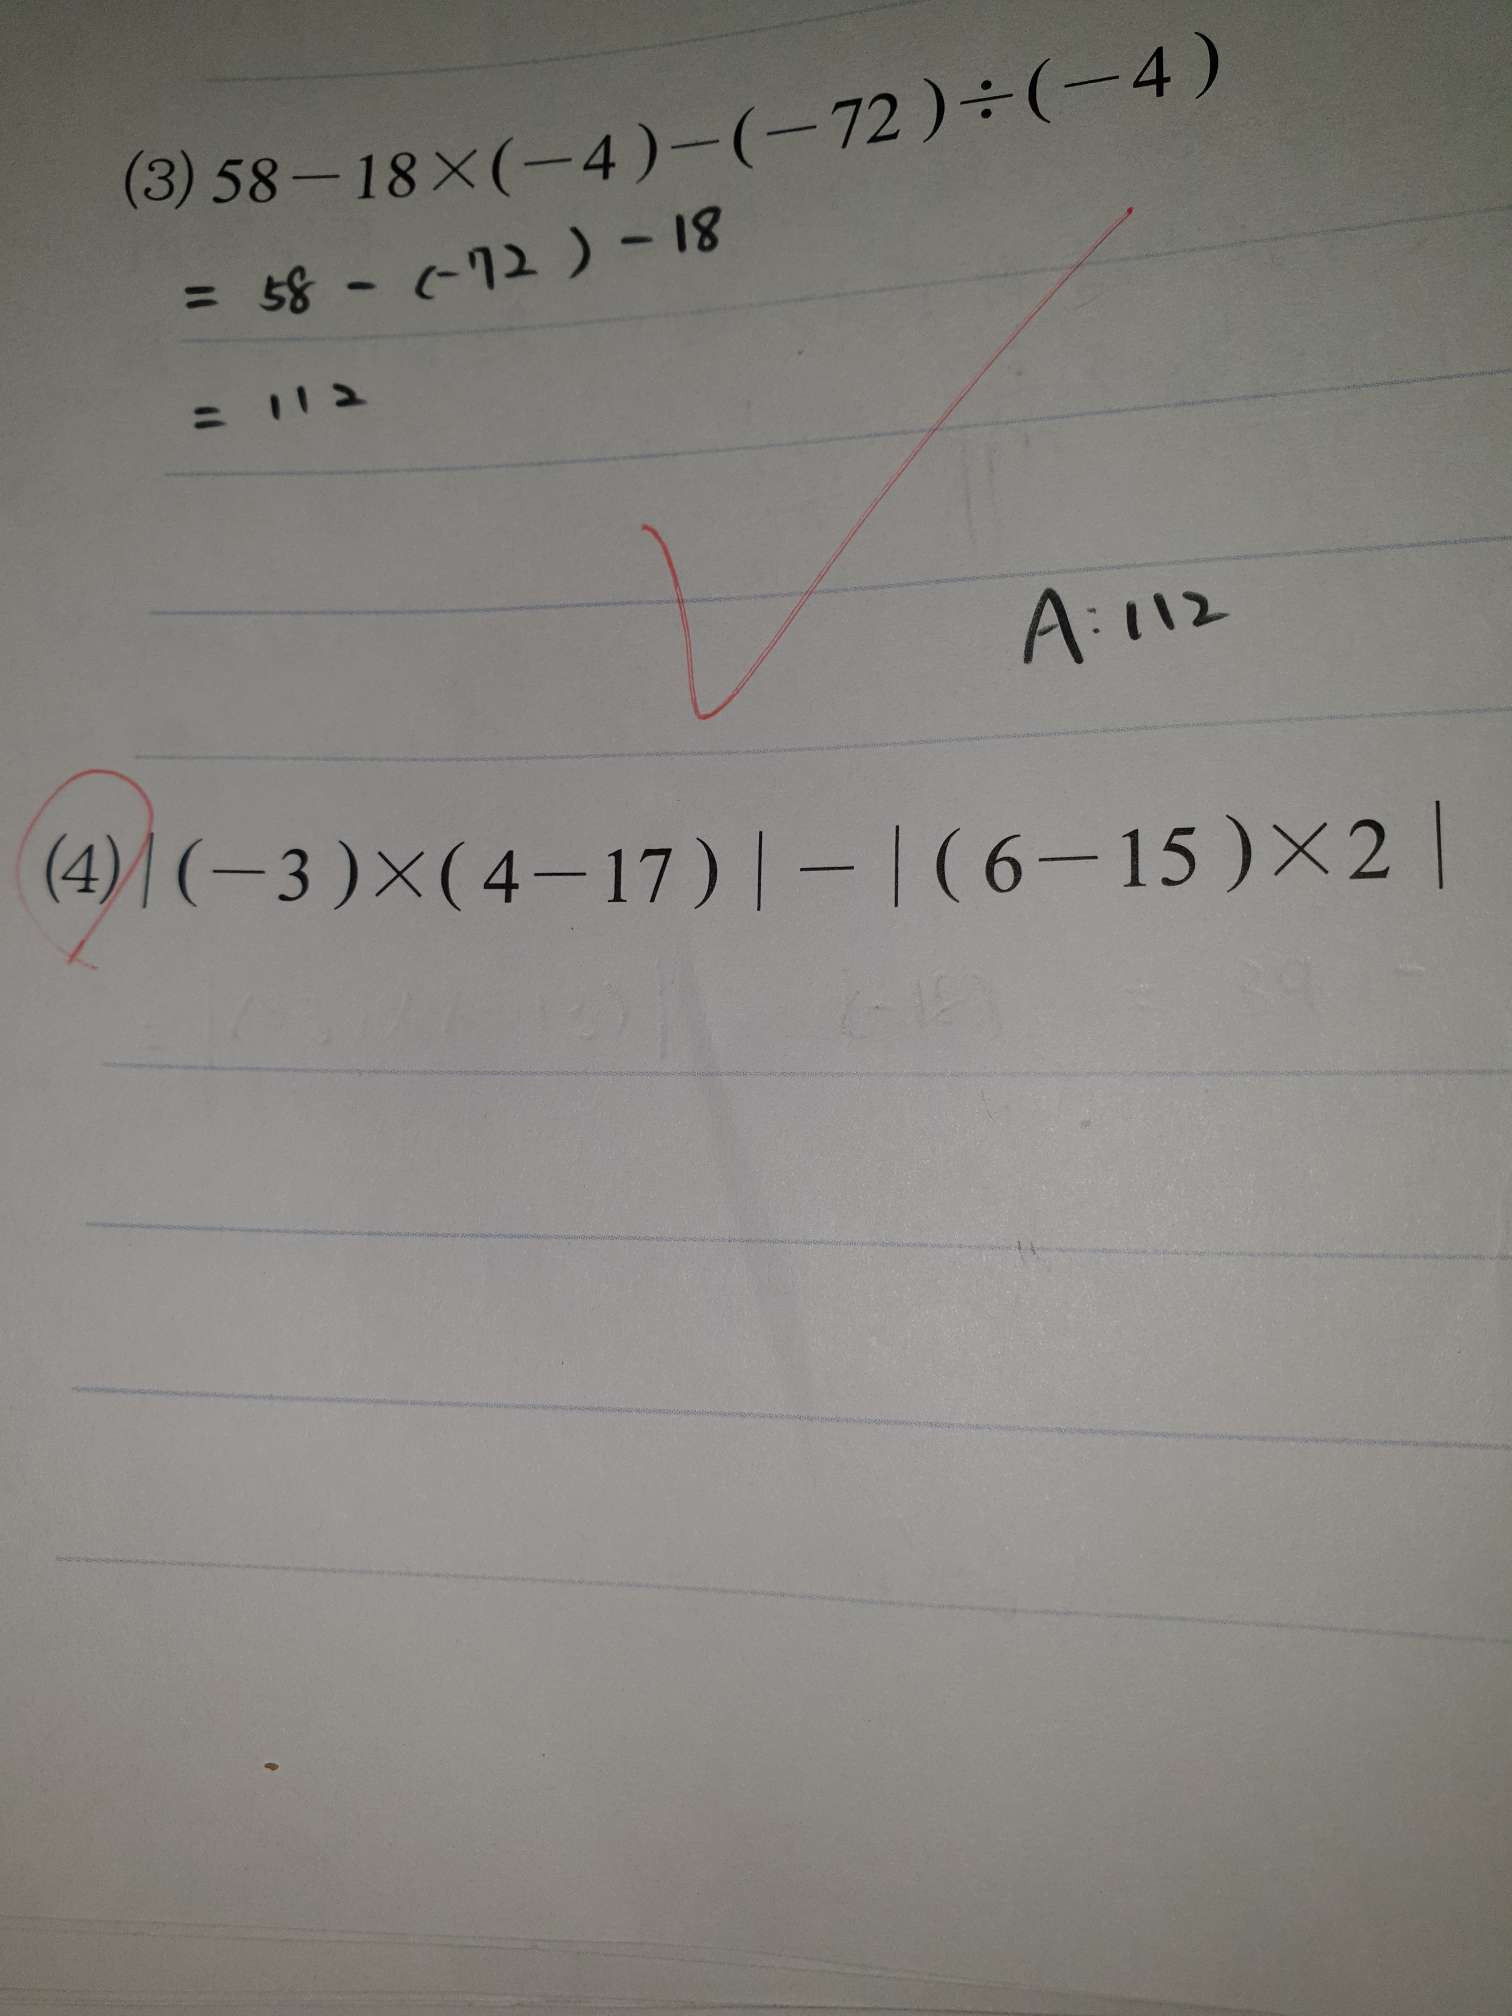 (3) 58－18×(－4)－(－72)÷(－4)
= 58 - (-72) - 18
= 112
A:112
(4)|(－3)×(4－17)|－|(6－15)×2|